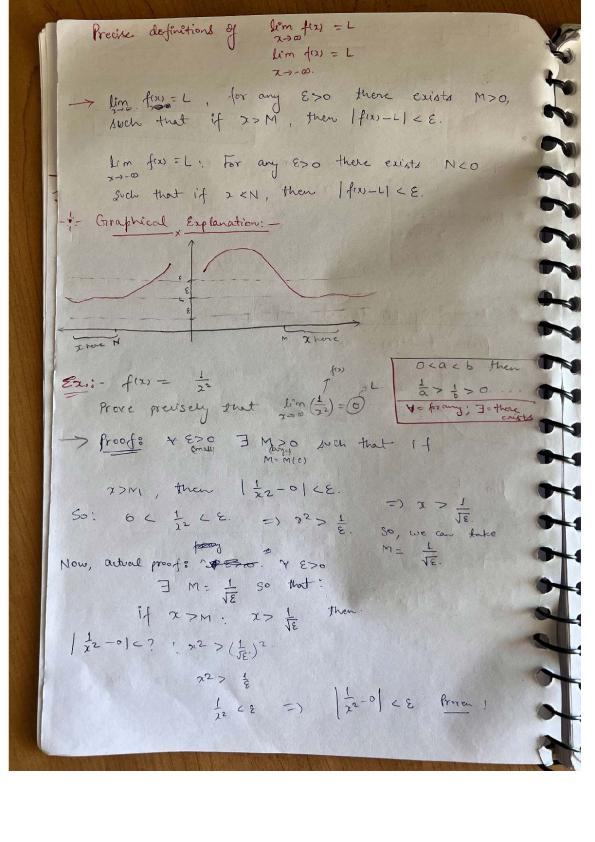 Precise definitions of lim x→∞ f(x) = L
lim x→-∞ f(x) = L
→ lim x→∞ f(x) = L , for any ε>0 there exists M>0,
such that if x>M , then |f(x)-L| < ε.
lim x→-∞ f(x) = L : For any ε>0 there exists N<0
Such that if x<N, then |f(x)-L| < ε.
Graphical Explanation:-
ε
L
ε
x here N
M x here
Ex:- f(x) = 1/x²
Prove precisely that lim x→∞ (1/x²) = 0
f(x)
L
0<a<b then
1/a > 1/b > 0 ....
∀ = for any ; ∃ = there exists
→ Proof: ∀ ε>0 ∃ M>0 such that if
(small) (large)
M = M(ε)
x>M, then |1/x² - 0| < ε.
So: 0 < 1/x² < ε. => x² > 1/ε.
=> x > 1/√ε.
So, we can take
M = 1/√ε.
Now, actual proof: ∀ ε>0
∃ M = 1/√ε so that:
if x>M : x > 1/√ε then
|1/x² - 0| < ? : x² > (1/√ε)²
x² > 1/ε
1/x² < ε => |1/x² - 0| < ε Proven !